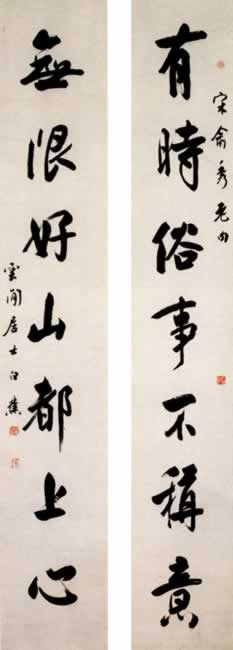 宋俞秀老句
有時俗事不稱意
無限好山都上心
雲間居士白蕉